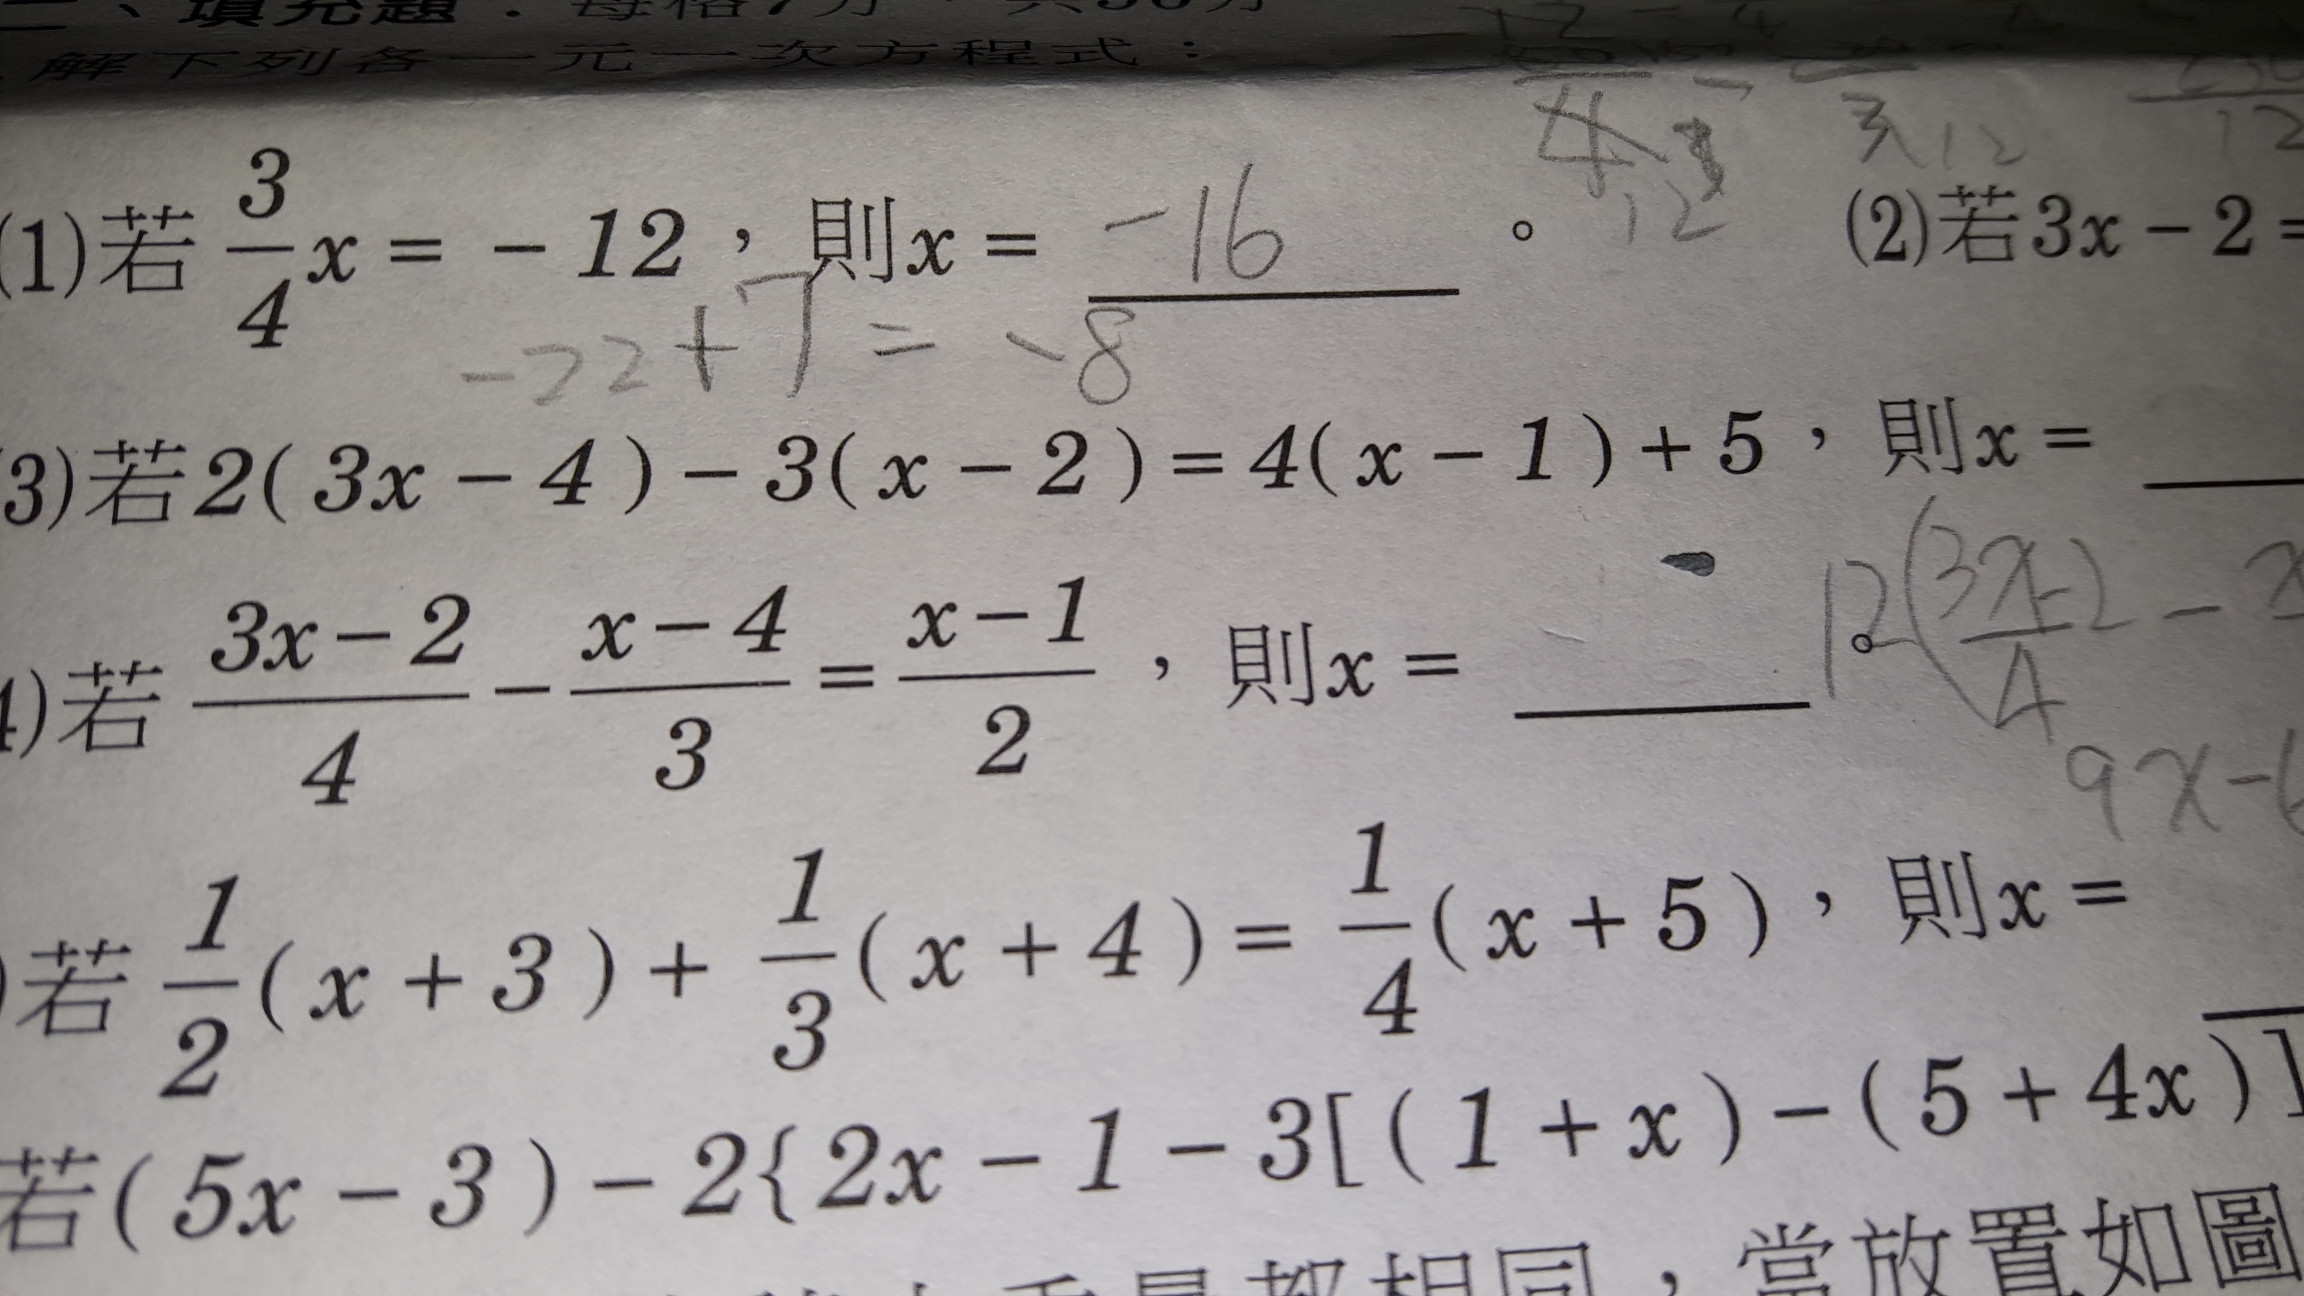 二、填充題：每格7分，共56分
解下列各一元一次方程式：
(1)若 3/4 x = -12，則x = -16 。 (2)若3x - 2 =
-22+7 = -8
(3)若2( 3x - 4 ) - 3( x - 2 ) = 4( x - 1 ) + 5，則x =
4)若 (3x - 2)/4 - (x - 4)/3 = (x - 1)/2 ，則x = 。 12(3x-2/4 -
9x-6
)若 1/2 ( x + 3 ) + 1/3 ( x + 4 ) = 1/4 ( x + 5 )，則x =
若( 5x - 3 ) - 2{ 2x - 1 - 3[ ( 1 + x ) - ( 5 + 4x ) ]
相同，當放置如圖